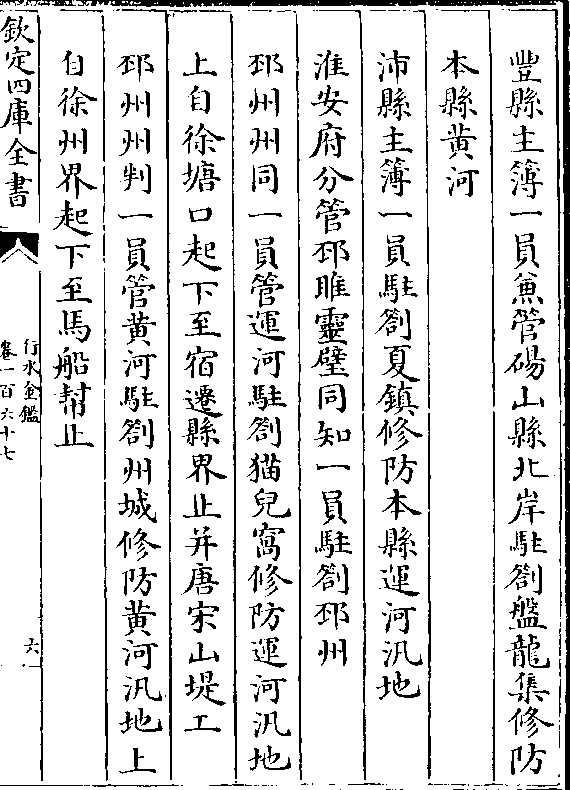 豐縣主簿一員兼管碭山縣北岸駐劄盤龍集修防
本縣黄河
沛縣主簿一員駐劄夏鎮修防本縣運河汛地
淮安府分管邳睢靈壁同知一員駐劄邳州
邳州州同一員管運河駐劄猫兒窩修防運河汛地
上自徐塘口起下至宿遷縣界止并唐宋山堤工
邳州州判一員管黄河駐劄州城修防黄河汛地上
自徐州界起下至馬船幇止
欽定四庫全書
行水金鑑
卷一百六十七
六